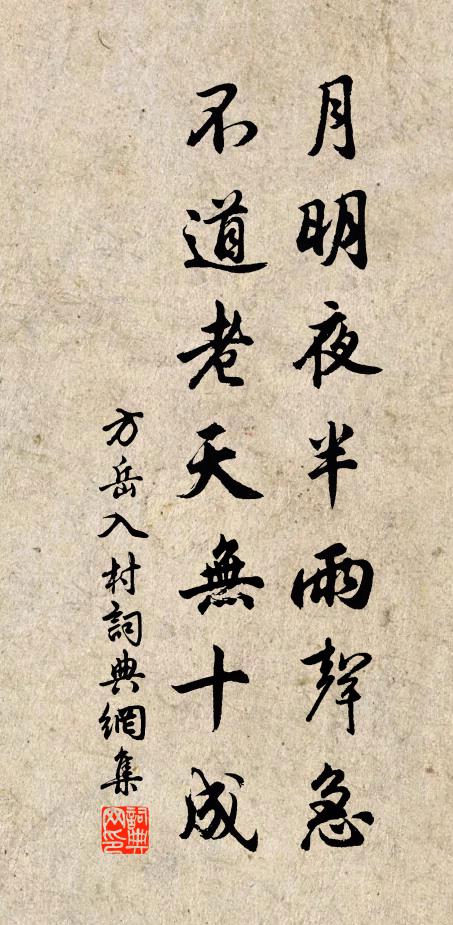 月明夜半雨聲急
不道老天無十成
方岳入村詞典網集
詞典
网印